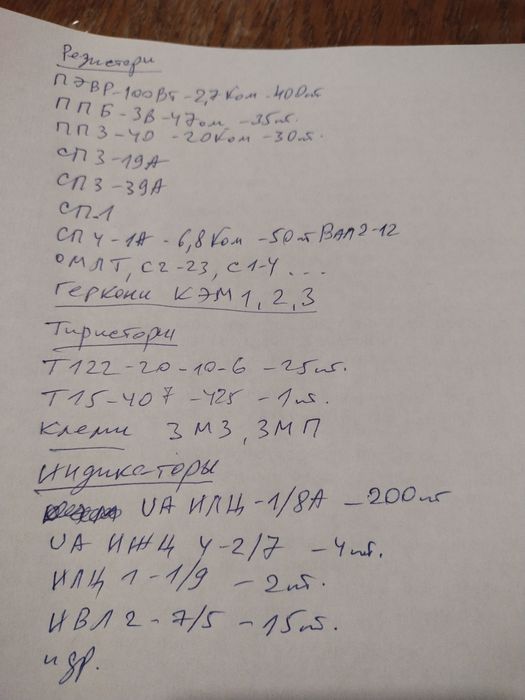 Резистори
ПЭВР-100Вт-2,7Ком-400шт
ППБ-3В-47ом -35шт.
ПП3-40 -20Ком -30шт.
СП3-19А
СП3-39А
СП-1
СП4-1А-6,8Ком -50шт ВАП2-12
ОМЛТ, С2-23, С1-4...
Геркони КЭМ1,2,3
Тиристори
Т122-20-10-6 -25шт.
Т15-40 7 -425 -1шт.
Клеми ЗМЗ, ЗМП
Индикаторы
ИА ИЛЦ-1/8А -200шт
ИА ИЖЦ 4-2/7 -4шт.
ИЛЦ 1-1/9 -2шт.
ИВЛ 2-7/5 -15шт.
и др.